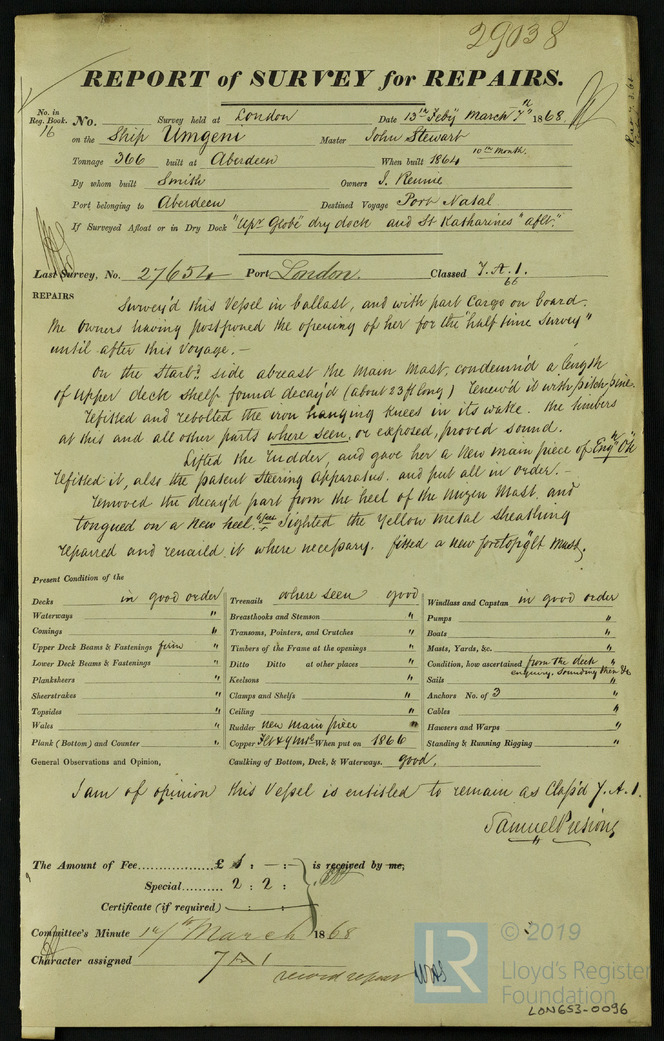 29038
REPORT of SURVEY for REPAIRS.
No. in Reg. Book. 16 No. Survey held at London Date 13th Feby March 7th 1868
on the Ship Umgeni Master John Stewart
Tonnage 366 built at Aberdeen When built 1864 10th Month.
By whom built Smith Owners J. Rennie
Port belonging to Aberdeen Destined Voyage Port Natal
If Surveyed Afloat or in Dry Dock "Upr Globe" dry dock and St Katharines "aflt."
Last Survey, No. 27654 Port London. Classed 7.A.1.
66
REPAIRS Survey'd this Vessel in ballast, and with part Cargo on board.
the Owners having postponed the opening of her for the "half time Survey"
until after this Voyage.—
On the Starbd. side abreast the Main Mast, condemn'd a length
of upper deck shelf found decay'd (about 23 ft long) renew'd it with pitch pine.
refitted and rebolted the iron hanging knees in its wake. the timbers
at this and all other parts where seen, or exposed, proved sound.
Lifted the rudder, and gave her a New main piece of Engh Ok
refitted it, also the patent Steering Apparatus. and put all in order.—
removed the decay'd part from the heel of the Mizen Mast, and
tongued on a New heel. Sighted the yellow Metal Sheathing
repaired and renail'd it where necessary. fitted a new foretopg'lt Mast,
Present Condition of the
Decks in good order
Waterways "
Comings "
Upper Deck Beams & Fastenings firm "
Lower Deck Beams & Fastenings "
Planksheers "
Sheerstrakes "
Topsides "
Wales "
Plank (Bottom) and Counter "
Treenails where seen good
Breasthooks and Stemson "
Transoms, Pointers, and Crutches "
Timbers of the Frame at the openings "
Ditto Ditto at other places "
Keelsons "
Clamps and Shelfs "
Ceiling "
Rudder new main piece "
Copper When put on 1866
Windlass and Capstan in good order
Pumps "
Boats "
Masts, Yards, &c. "
Condition, how ascertained from the deck "
enquiry. Sounding them &c
Sails "
Anchors No. of 3 "
Cables "
Hawsers and Warps "
Standing & Running Rigging "
General Observations and Opinion, Caulking of Bottom, Deck, & Waterways. good.
I am of opinion this Vessel is entitled to remain as Class'd 7.A.1.
Samuel Preston,
The Amount of Fee £ : — : is received by me,
Special 2 : 2 :
Certificate (if required) — : — :
Committee's Minute 17th March 1868
Character assigned 7 A 1
record report
© 2019
LR
Lloyd's Register
Foundation
LON653-0096